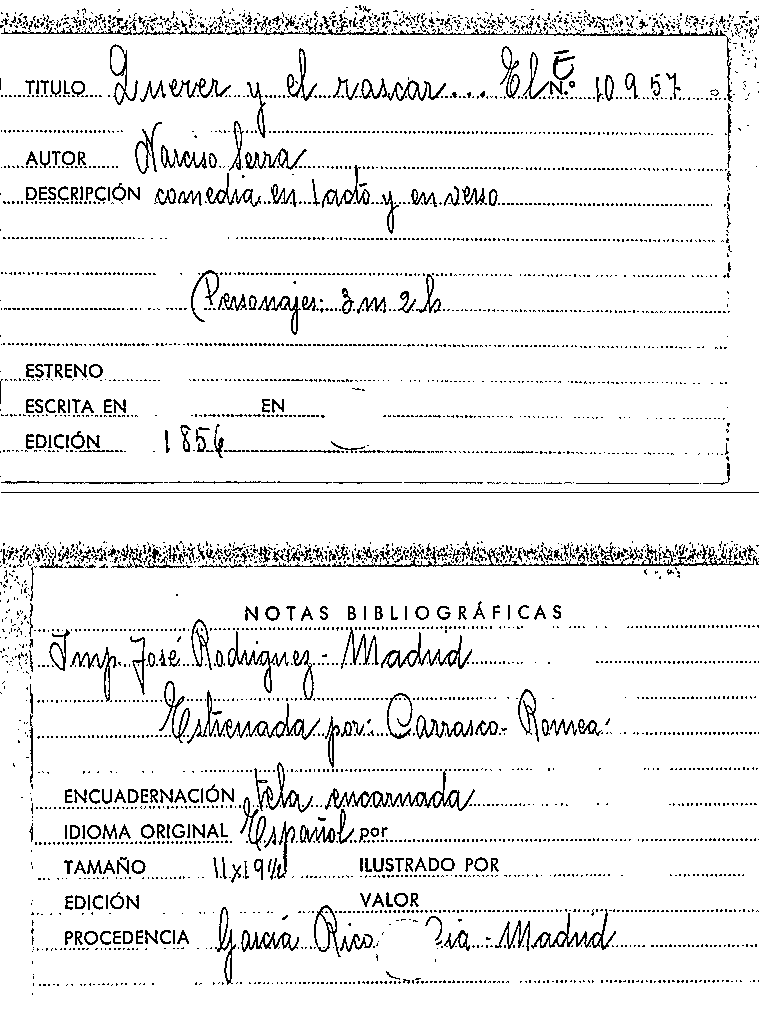 TITULO Querer y el rascar... El E N.º 10957
AUTOR Narciso Serra
DESCRIPCIÓN comedia en 1 acto y en verso
Personajes: 3 m 2 h
ESTRENO
ESCRITA EN EN
EDICIÓN 1856
NOTAS BIBLIOGRÁFICAS
Imp. José Rodriguez - Madrid
Estrenada por: Carrasco - Romea.
ENCUADERNACIÓN tela encarnada
IDIOMA ORIGINAL Español por
TAMAÑO 11x19½ ILUSTRADO POR
EDICIÓN VALOR
PROCEDENCIA García Rico - Madrid